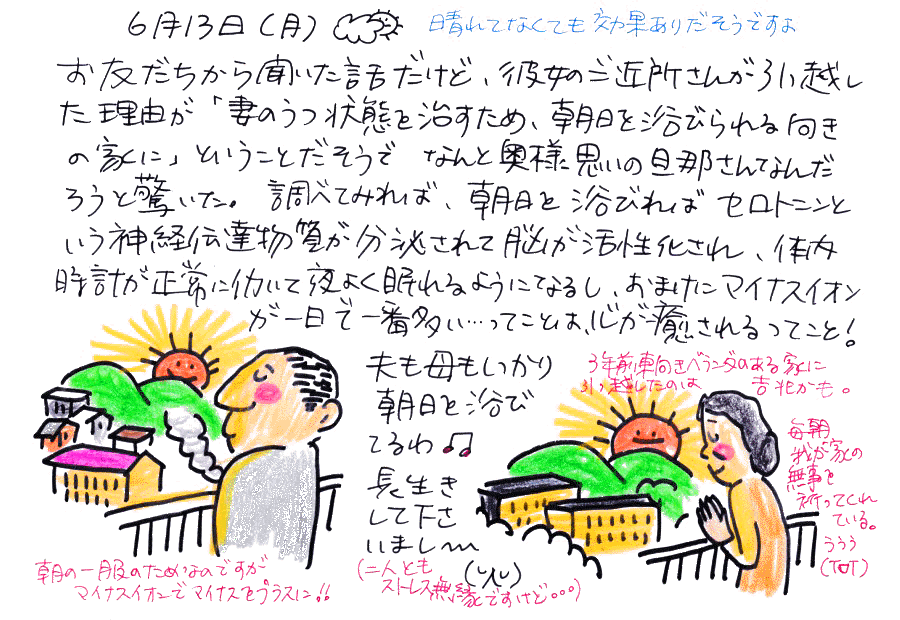 6月13日(月)
晴れてなくても効果ありだそうですよ
お友だちから聞いた話だけど、彼女のご近所さんが引っ越し
た理由が「妻のうつ状態を治すため、朝日を浴びられる向き
の家に」ということだそうで なんと奥様思いの旦那さんなんだ
ろうと驚いた。調べてみれば、朝日を浴びれば セロトニンと
いう神経伝達物質が分泌されて脳が活性化され、体内
時計が正常に働いて夜よく眠れるようにてなるし、おまけにマイナスイオン
が一日で一番多い…ってことは、心が癒されるってこと!
夫も母もしっかり
朝日を浴び
てるわ♫
長生き
して下さ
いまし〜
(二人とも
ストレス無縁ですけど・・・)
3年前、東向きベランダのある家に
引っ越したのは 吉兆かも。
毎朝
我が家の
無事を
祈ってくれ
ている。
ううう
(TOT)
朝の一服のためなのですが
マイナスイオンでマイナスをプラスに!!